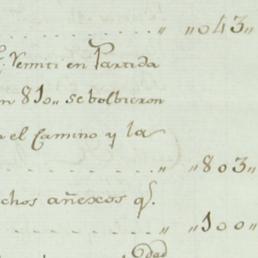 " "043"
Venti en Partida
n 810 se bolbieron
el Camino y la
" "803"
chos añexos q.
" "100"
dad